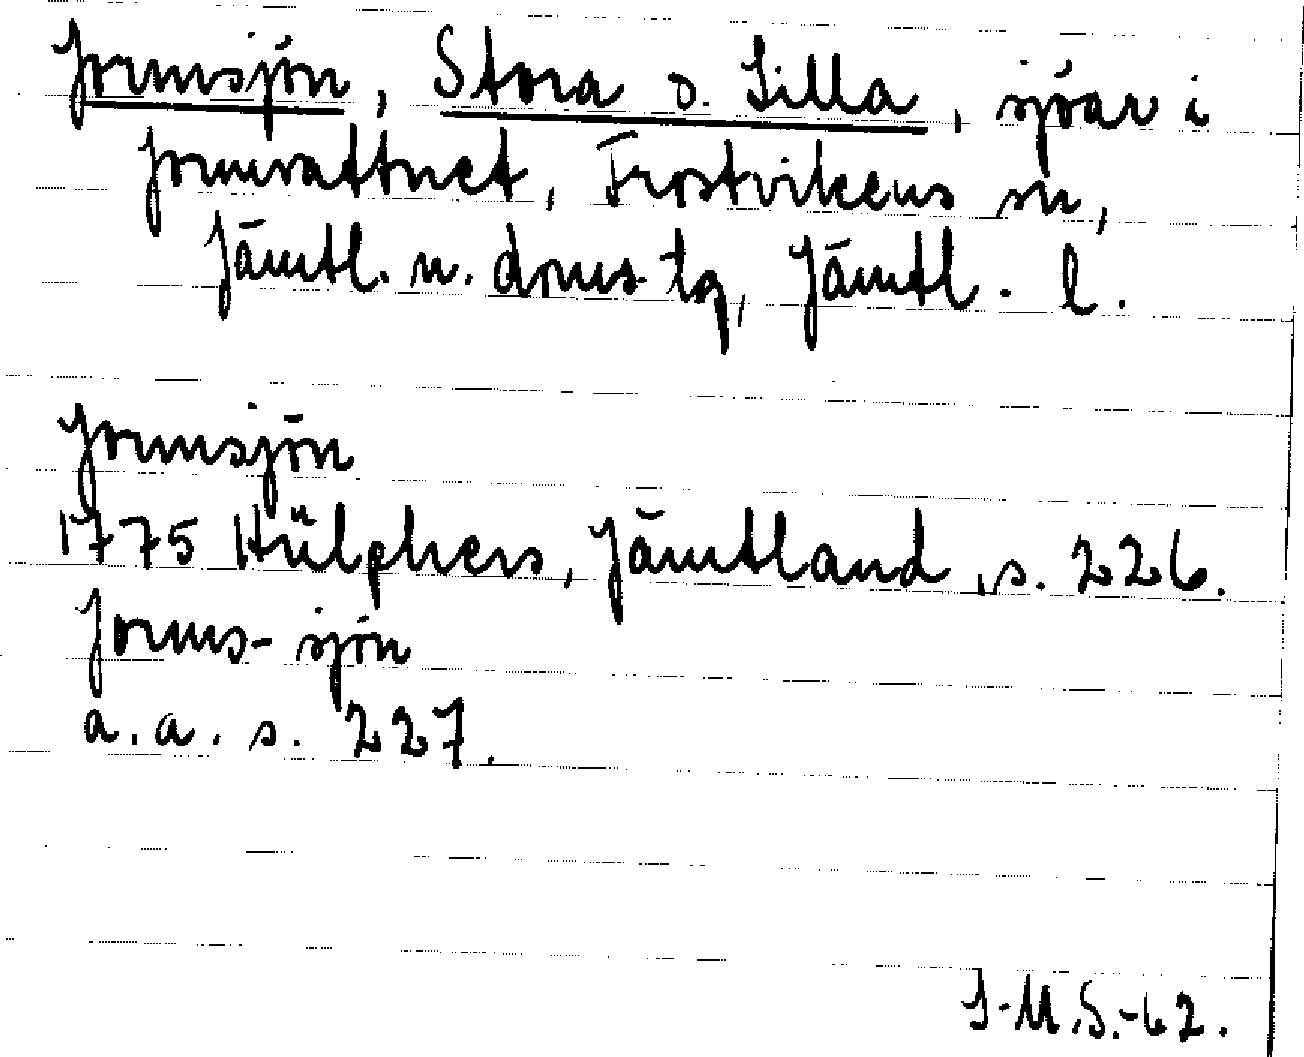 Jormsjön, Stora o. Lilla, sjöar i
Jormvattnet, Frostvikens sn,
Jämtl. n. doms tg, Jämtl. l.
Jormsjön
1775 Hülphers, Jämtland, s. 226.
Jorms-sjön
a.a. s. 227.
I-M.S.-62.